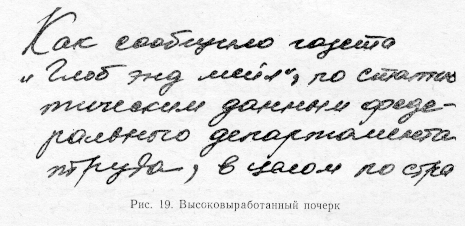 Как сообщило газета
„Глоб энд мейл“, по статис
тическим данным феде-
рального департамента
труда, в целом по стра
Рис. 19. Высоковыработанный почерк